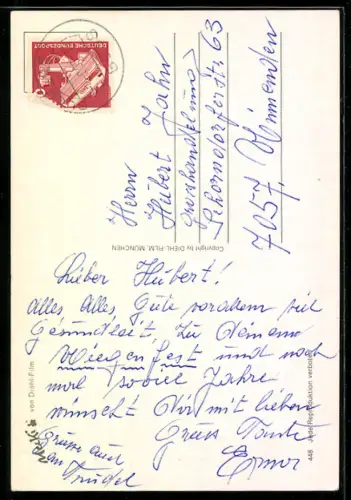 DEUTSCHE BUNDESPOST
Herrn
Hubert Jahn
Grosshandelung
7057 Winnenden
63
Copyright by DIEHL-FILM, MÜNCHEN
Lieber Hubert!
Alles, alles, Gute vorallem viel
Gesundheit. Zu Deinem
Wiegenfest und noch
mal soviel Jahre
wünscht Dir mit lieben
Gruss Tante
Erna
Grüsse auch
an Trudel
von Diehl-Film
448 Jede Reproduktion verboten